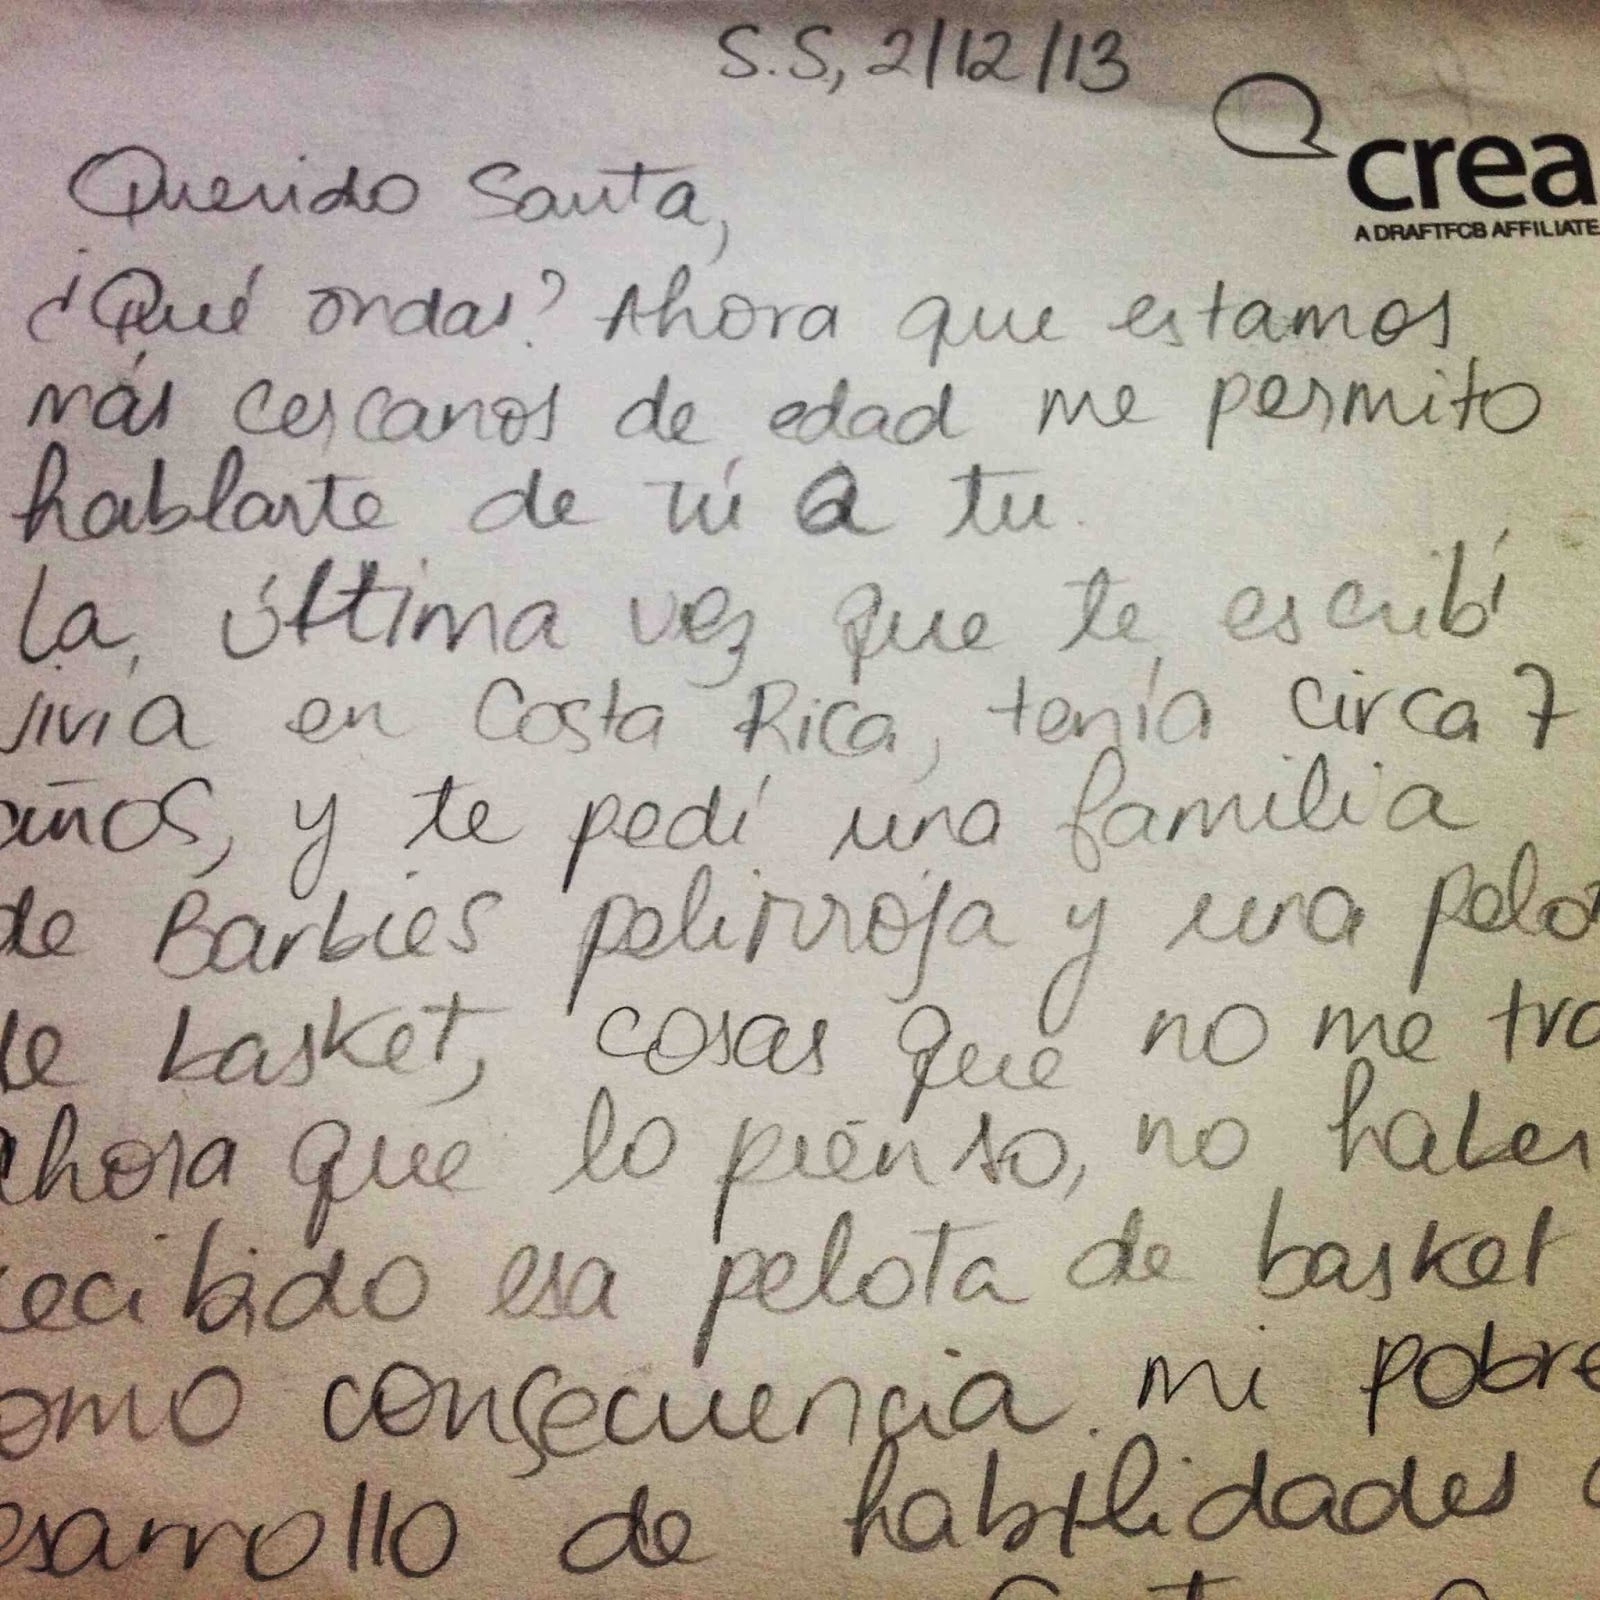 S.S, 2/12/13
crea
A DRAFTFCB AFFILIATE
Querido Santa,
¿Qué ondas? Ahora que estamos
más cercanos de edad me permito
hablarte de tú a tu.
La última vez que te escribí
vivía en Costa Rica, tenía circa 7
años, y te pedí una familia
de Barbies pelirroja y una pelo
de basket, cosas que no me tra
ahora que lo pienso, no haber
recibido esa pelota de basket
omo consecuencia mi pobre
esarrollo de habilidades